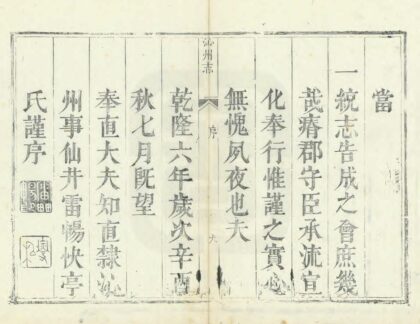 當
一統志告成之會庶幾
哉瘠郡守臣承流宣
化奉行惟謹之實心
無愧夙夜也夫
沁州志
序
九
乾隆六年歲次辛酉
秋七月既望
奉直大夫知直隸沁
州事仙井雷暢快亭
氏謹序